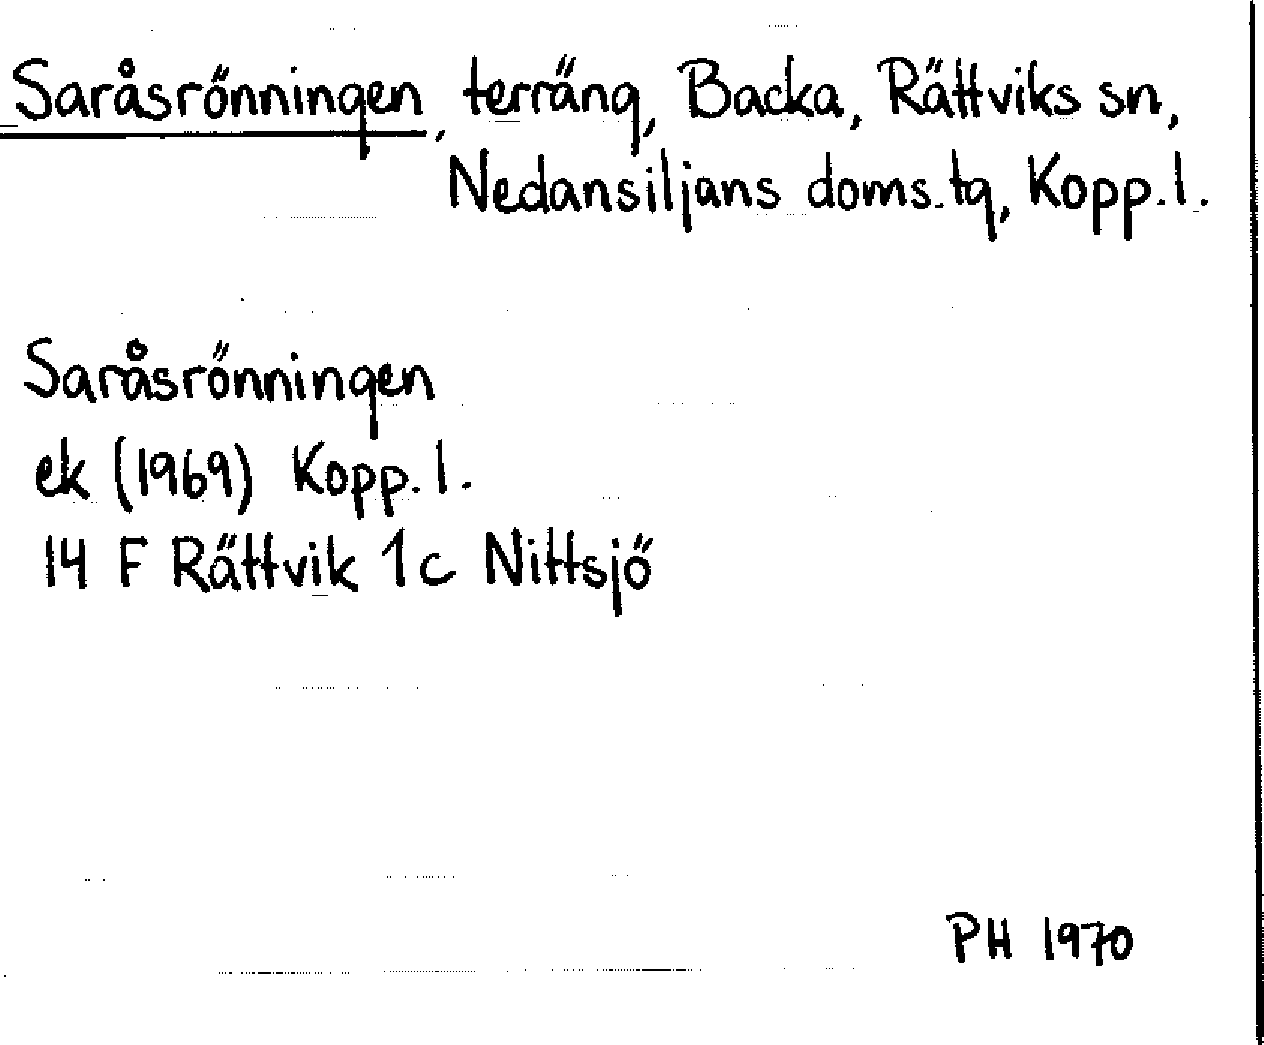 Saråsrönningen, terräng, Backa, Rättviks sn,
Nedansiljans doms.tg, Kopp.l.
Saråsrönningen
ek (1969) Kopp.l.
14 F Rättvik 1c Nittsjö
PH 1970